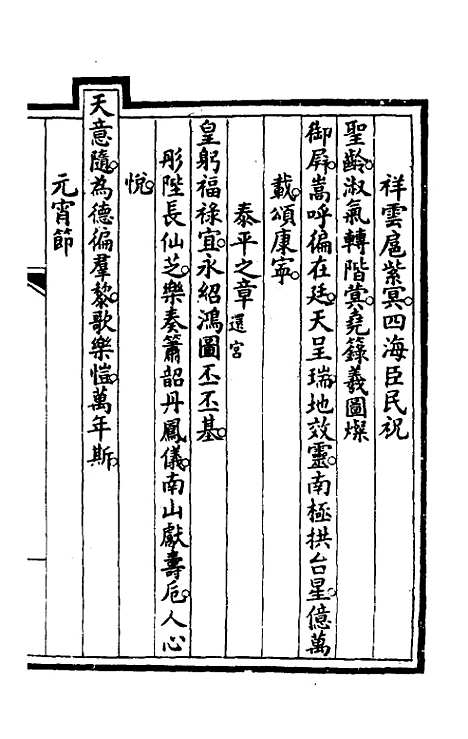 祥雲扈紫冥。四海臣民祝
聖齡。淑氣轉階蓂。堯籙羲圖燦
御屏。嵩呼徧在廷。天呈瑞。地效靈。南極拱台星。億萬
載。頌康寧。
泰平之章還宮
皇躬福祿宜。永紹鴻圖丕丕基。
彤陛長仙芝。樂奏簫韶丹鳳儀。南山獻壽卮。人心
悅。
天意隨。為德徧羣黎。歌樂愷。萬年斯。
元宵節